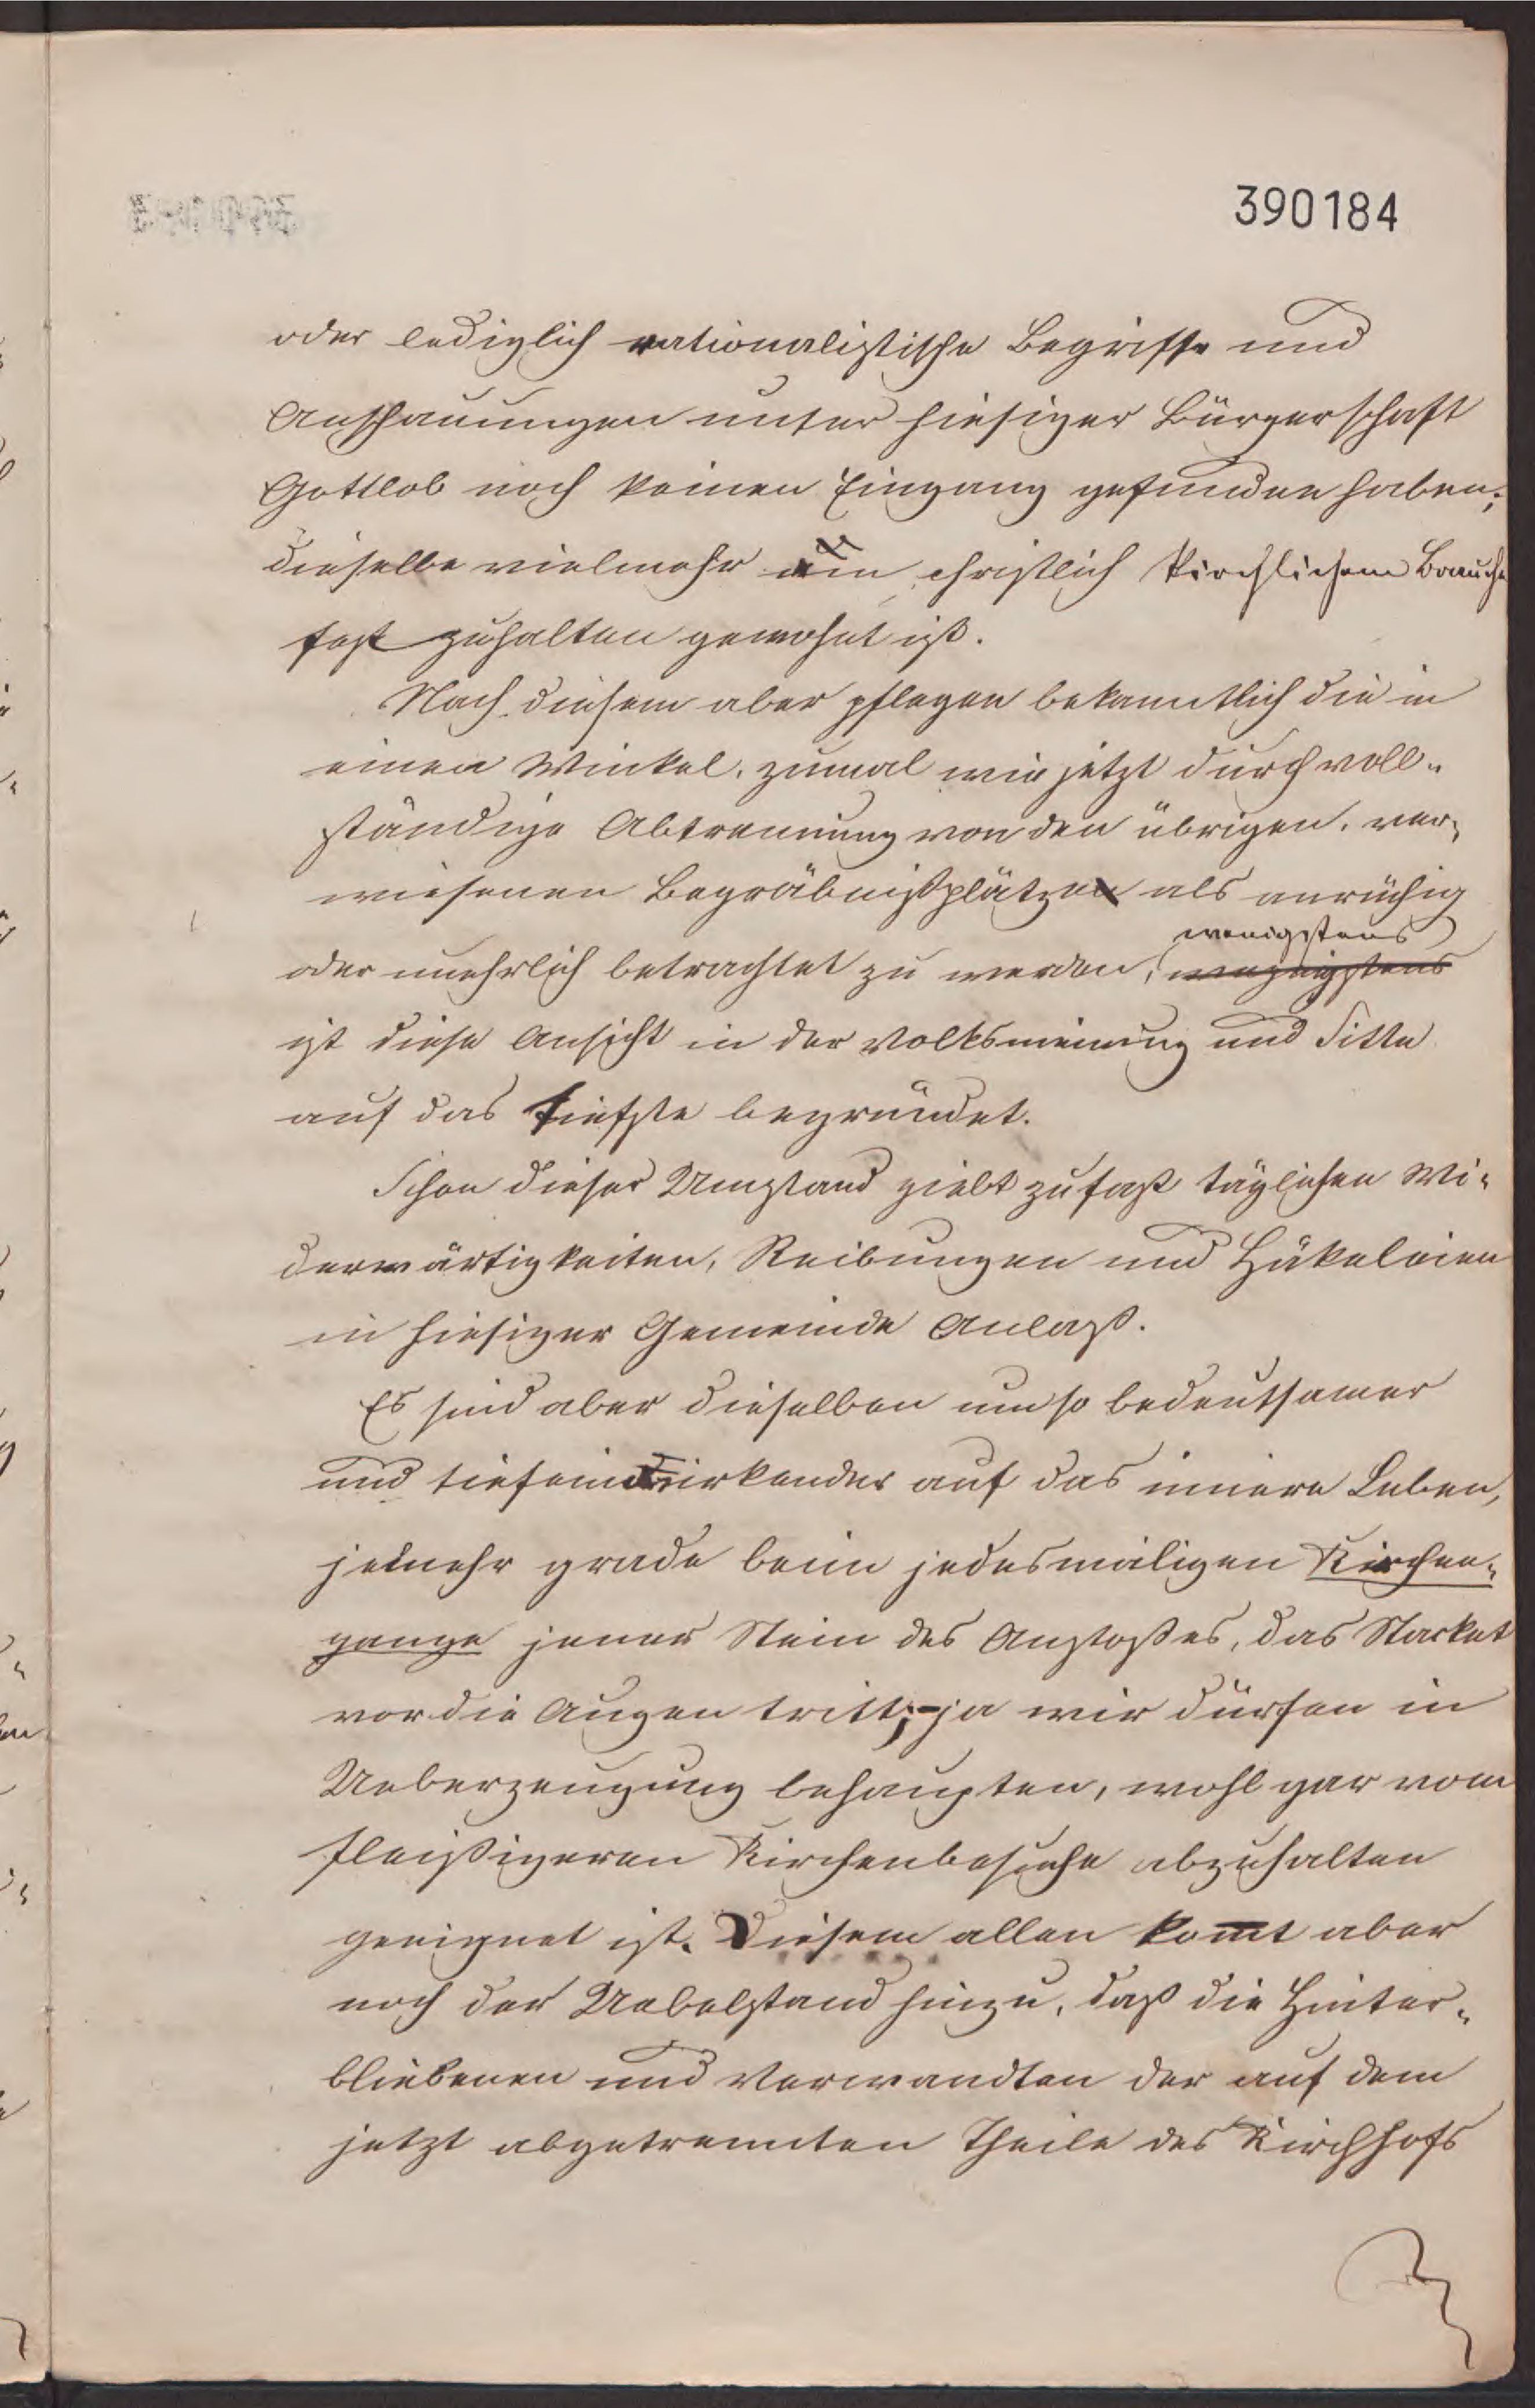 390184
oder lediglich rationalistische Begriffe und
Anschauungen unter hiesiger Bürgerschaft
Gottlob noch keinen Eingang gefunden haben;
dieselbe vielmehr am christlich kirchlichem Brauche
fest zuhalten gewohnt ist.
Nach diesem aber pflegen bekanntlich die in
einen Winkel, zumal wie jetzt durch voll-
ständige Abtrennung von den übrigen, ver-
wiesenen Begräbnißplätze als anrüchig
wenigstens
oder unehrlich betrachtet zu werden,
ist diese Ansicht in der Volksmeinung und Sitte
auf das tiefste begründet.
Schon dieser Umstand giebt zu fast täglichen Wi-
derwärtigkeiten, Reibungen und Häkeleien
in hiesiger Gemeinde Anlaß.
Es sind aber dieselben um so bedeutsamer
und tiefeinwirkender auf das innere Leben,
jemehr grade beim jedesmaligen Kirchen-
gange jener Stein des Anstoßes, das Stacket
vor die Augen tritt; ja wir dürfen in
Ueberzeugung behaupten, wohl gar vom
fleißigeren Kirchenbesuche abzuhalten
geeignet ist. Diesem allen kommt aber
noch der Uebelstand hinzu, daß die Hinter-
bliebenen und Verwandten der auf dem
jetzt abgetrennten Theile des Kirchhofs